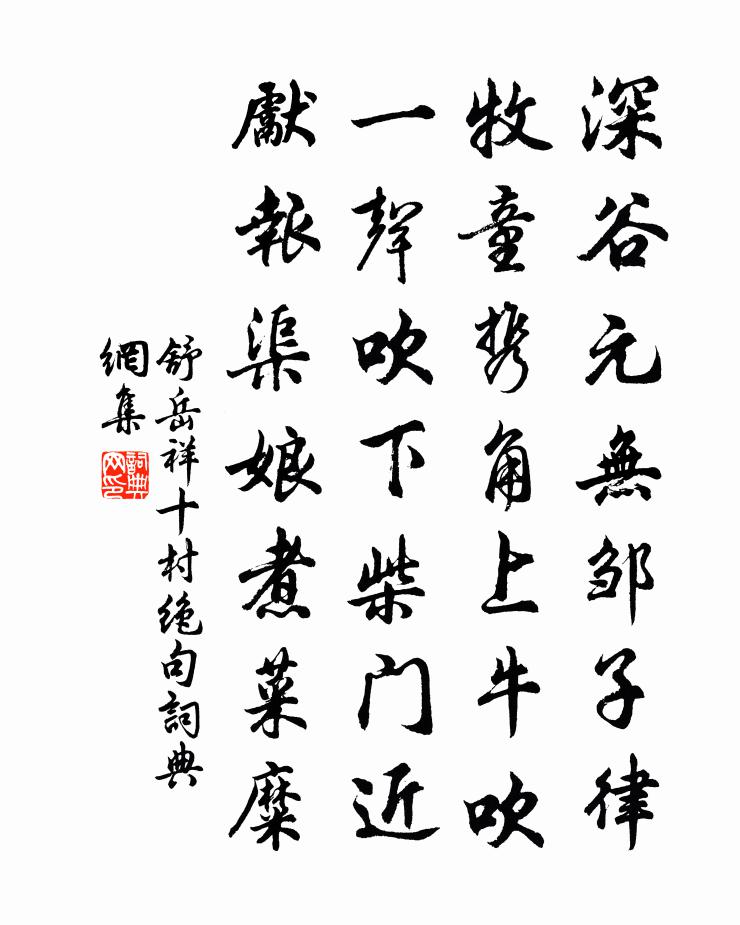 深谷元無邹子律
牧童携角上牛吹
一聲吹下柴门近
獻報渠娘煮菜糜
舒岳祥十村绝句詞典
網集
詞典
网印